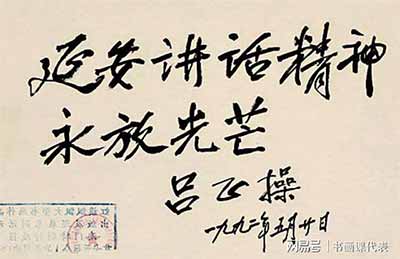 延安讲话精神
永放光芒
吕正操
一九九二年五月廿日
网易号 | 书画课代表